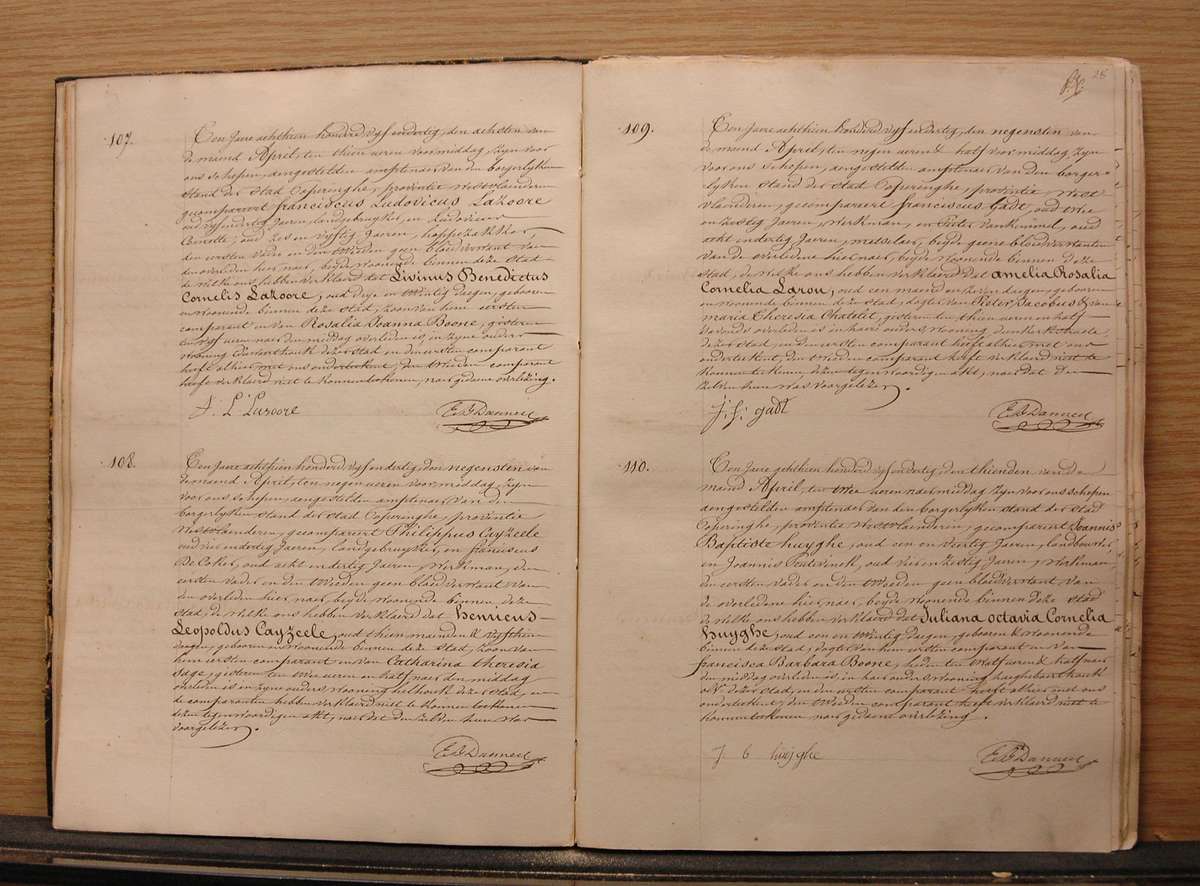 107.
Den Jaere achthien honderd vyf endertig, den achsten van
de maend April, ten thien ueren voormiddag, zyn voor
ons schepen, aengestelden amptenaer van den borgerlyken
stand der stad Poperinghe, provintie Westvlaenderen
gecompareert franciscus Ludovicus Lazoore
oud vyf endertig Jaeren, landgebruyker, en Ludovicus
oud zes en vyftig Jaeren,
den eersten vader en den tweeden geen bloedverwant van
den overleden hier naer, beyde woonende binnen deze stad
de welke ons hebben verklaerd dat Livinus Benedictus
Cornelis Lazoore, oud drye en twintig daegen, geboren
en woonende binnen deze stad, zoon van hem eersten
comparant en van Rosalia Joanna Boone, gisteren
ten vyf ueren naer den middag overleden is, in zyne ouders
wooning dezer stad en den eersten comparant
heeft alhier met ons onderteekent, den tweeden comparant
heeft verklaerd niet te konnen teekenen, naer gedaene overlezing.
F. L. Lazoore
108.
Den Jaere achthien honderd vyf endertig, den negensten van
de maend April, ten negen ueren voormiddag, zyn
voor ons schepen, aengestelden amptenaer van den
borgerlyken stand der stad Poperinghe, provintie
Westvlaenderen, gecompareert Philippus Cayzeele
oud vier endertig Jaeren, landgebruyker, en franciscus
De Coker, oud acht endertig Jaeren, werkman, den
eersten vader en den tweeden geen bloedverwant van
den overleden hier naer, beyde woonende binnen deze
stad, de welke ons hebben verklaerd dat henricus
Leopoldus Cayzeele, oud thien maenden & vyfthien
daegen, geboren en woonende binnen deze stad, zoon van
hem eersten comparant en van Catharina theresia
Sage, gisteren ten twee ueren en half naer den middag
overleden is en zyne ouders wooning helhoek deze stad, en
de comparanten hebben verklaerd niet te konnen teekenen
dezen tegenwoordigen akt, naer dat den zelven hun was
voorgelezen.
28
109.
Den Jaere achthien honderd vyf endertig, den negensten van
de maend April, ten negen ueren & half voormiddag, zyn
voor ons schepen, aengestelden amptenaer van den borger-
lyken stand der stad Poperinghe, provintie West
vlaenderen, gecompareert franciscus Gadt, oud twee
en zestig Jaeren, werkman, en Pieter Van kemmel, oud
acht endertig Jaeren, metselaer, beyde geene bloedverwanten
van de overledene hier naer, beyde woonende binnen deze
stad, de welke ons hebben verklaerd dat amelia Rosalia
Cornelia Larou, oud een maend en zeven daegen, geboren
en woonende binnen deze stad, dogter van Pieter Jacobus & van
maria Theresia Chatelet, gisteren ten thien ueren en half
's avonds overleden is in haere ouders wooning,
dezer stad en den eersten comparant heeft alhier met ons
onderteekent, den tweeden comparant heeft verklaerd niet te
konnen teekenen, dezen tegenwoordigen akt, naer dat den
zelven hun was voorgelezen.
J. f. gadt
110.
Den Jaere achthien honderd vyf endertig, den thienden van de
maend April, ten twee ueren naer middag zyn voor ons schepen
aengestelden amptenaer van den borgerlyken stand der stad
Poperinghe, provintie Westvlaenderen, gecompareert Joannis
Baptiste huyghe, oud een en veertig Jaeren, landbouwer,
en Joannis oud vier en zestig Jaeren, werkman
den eersten vader en den tweeden geen bloedverwant van
de overledene hier naer, beyde woonende binnen deze stad
de welke ons hebben verklaerd dat Juliana octavia Cornelia
huyghe, oud een en twintig daegen, geboren & woonende
binnen deze stad, dogter van hem eersten comparant en van
francisca Barbara Boone, heden ten twalf ueren & half naer
den middag overleden is, in haer ouders wooning
dezer stad, en den eersten comparant heeft alhier met ons
onderteekent, den tweeden comparant heeft verklaerd niet te
konnen teekenen naer gedaene overlezing.
J B huyghe